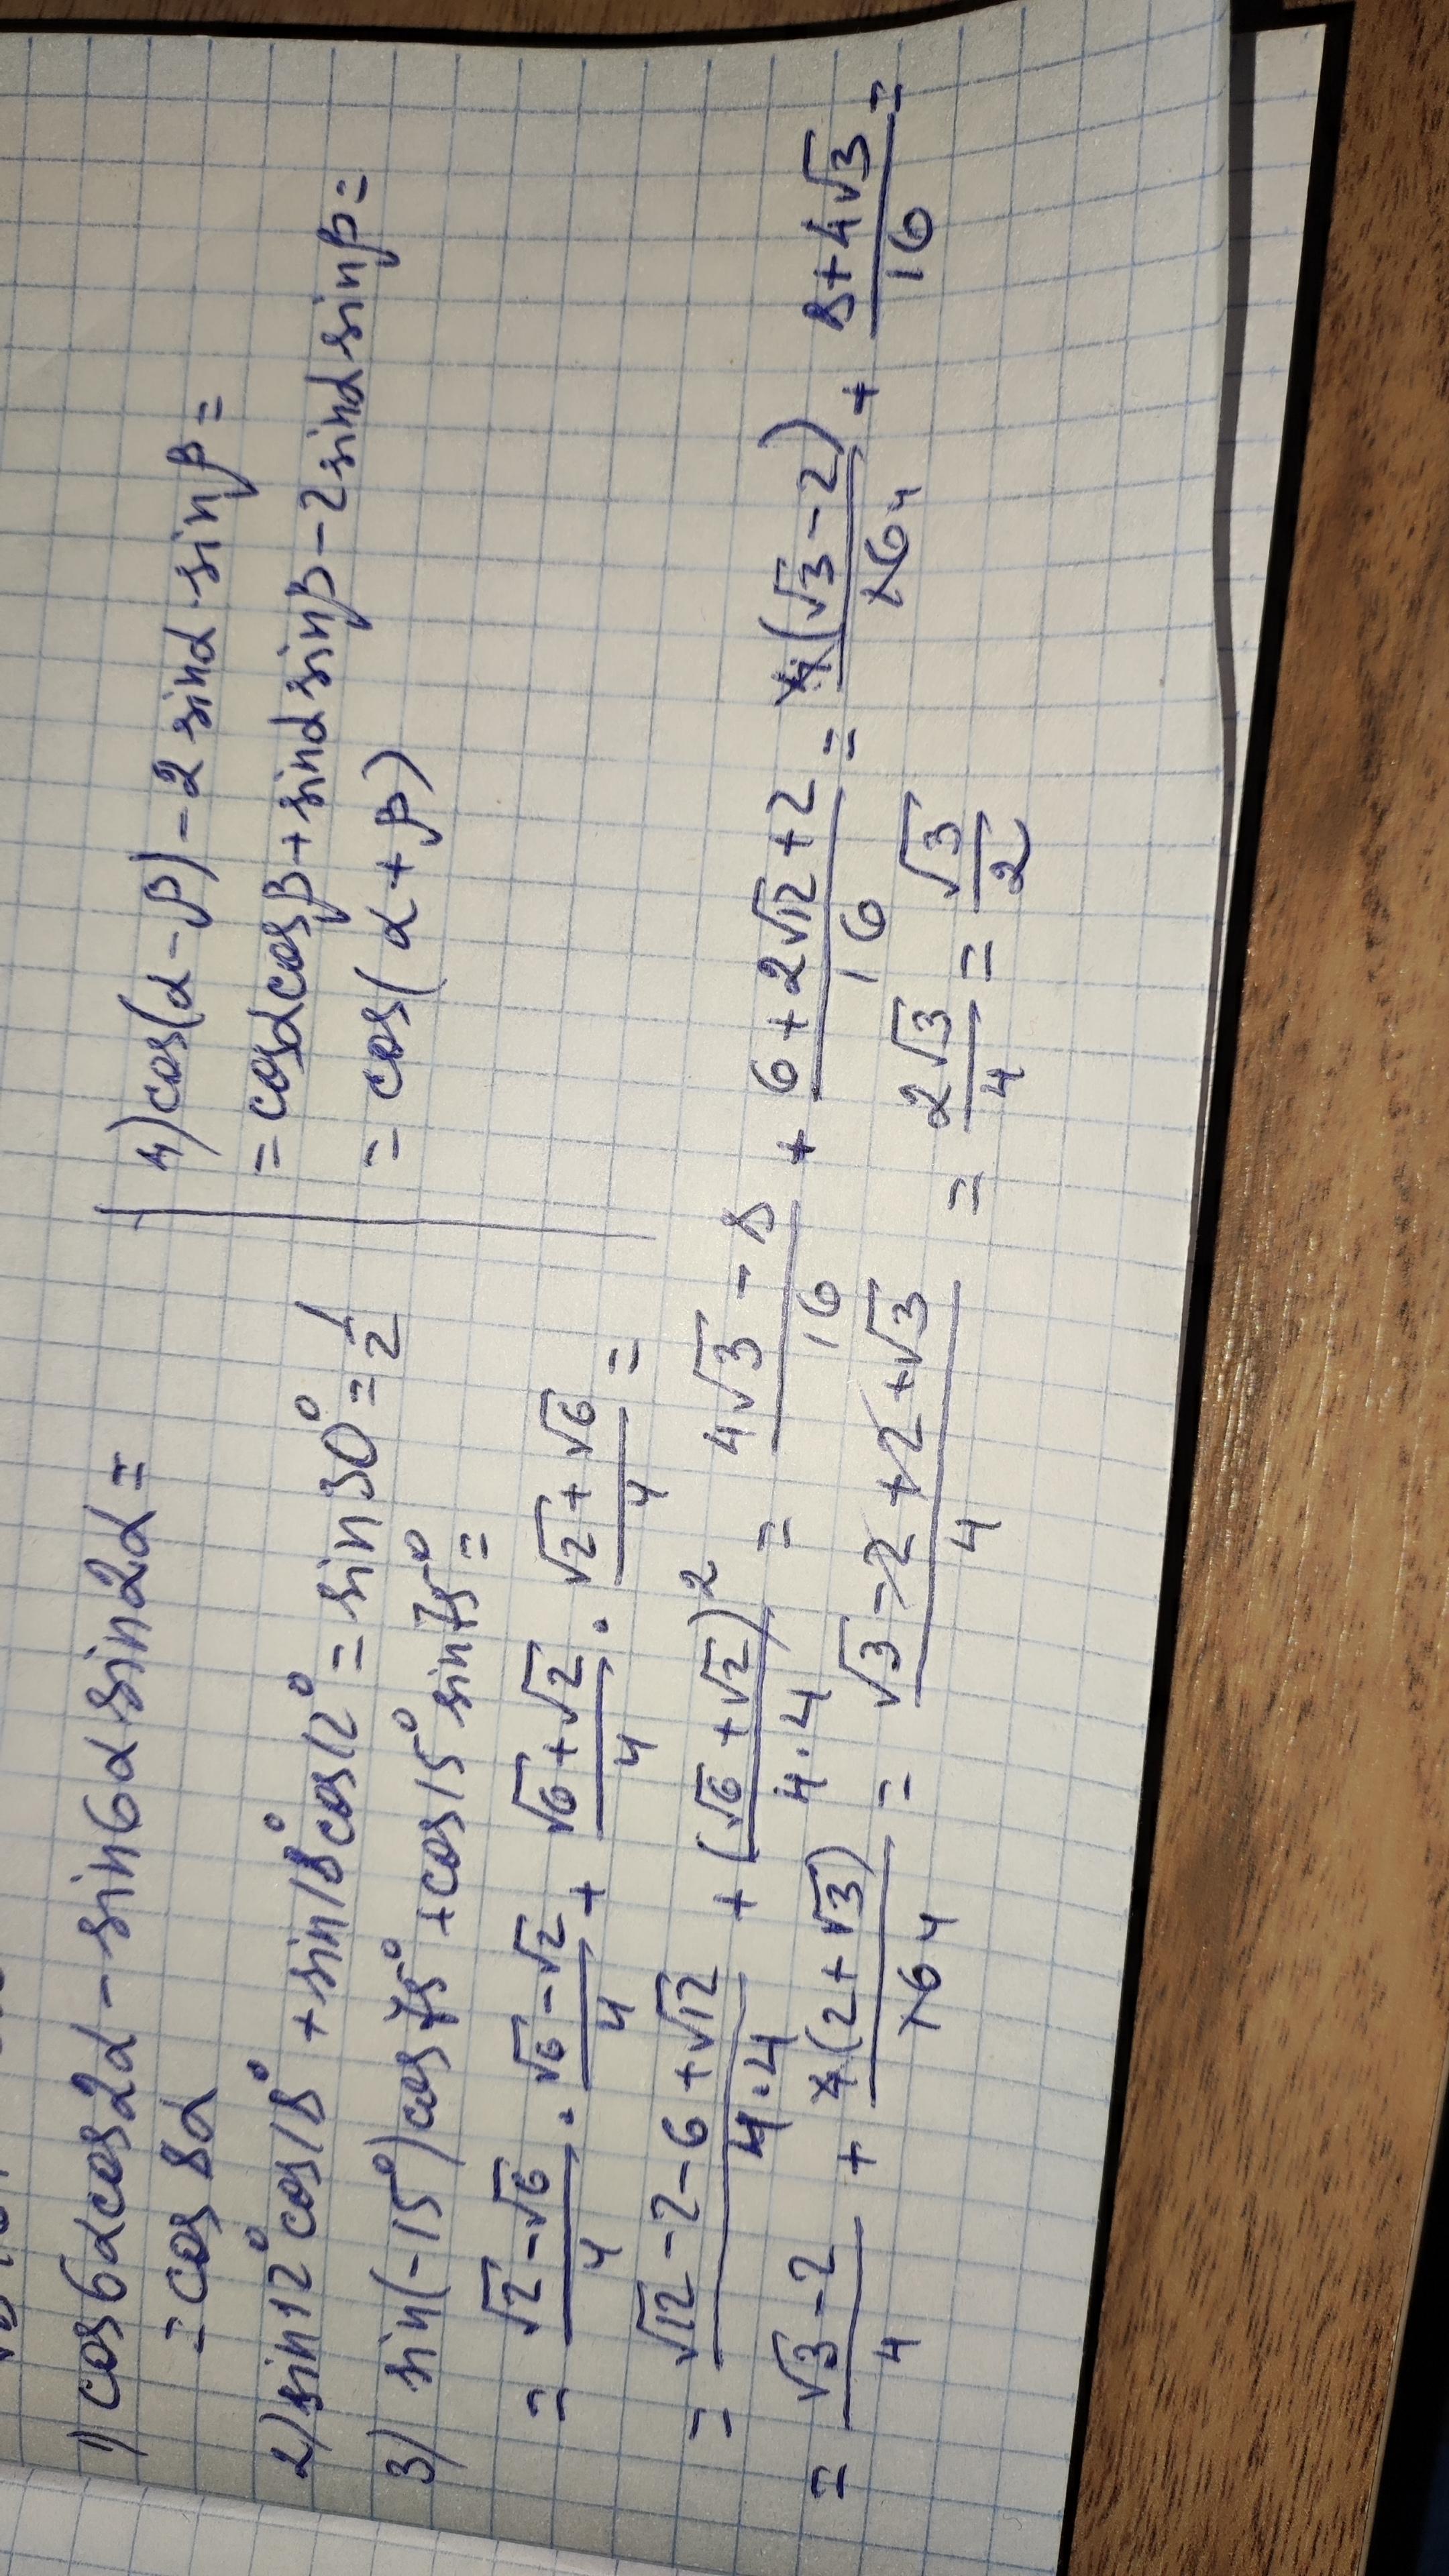 1) cos6αcos2α - sin6αsin2α =
= cos 8α
2) sin12°cos18° + sin18°cos12° = sin30° = 1/2
3) sin(-15°)cos75° + cos15°sin75° =
= (√2 - √6)/4 · (√6 - √2)/4 + (√6 + √2)/4 · (√2 + √6)/4 =
= (√12 - 2 - 6 + √12)/(4·4) + (√6 + √2)²/(4·4) = (4√3 - 8)/16 + (6 + 2√12 + 2)/16 = 4(√3 - 2)/16 4 + (8 + 4√3)/16 =
= (√3 - 2)/4 + 4(2 + √3)/16 4 = (√3 - 2 + 2 + √3)/4 = 2√3/4 = √3/2
4) cos(α - β) - 2 sinα · sinβ =
= cosαcosβ + sinαsinβ - 2sinαsinβ =
= cos(α + β)